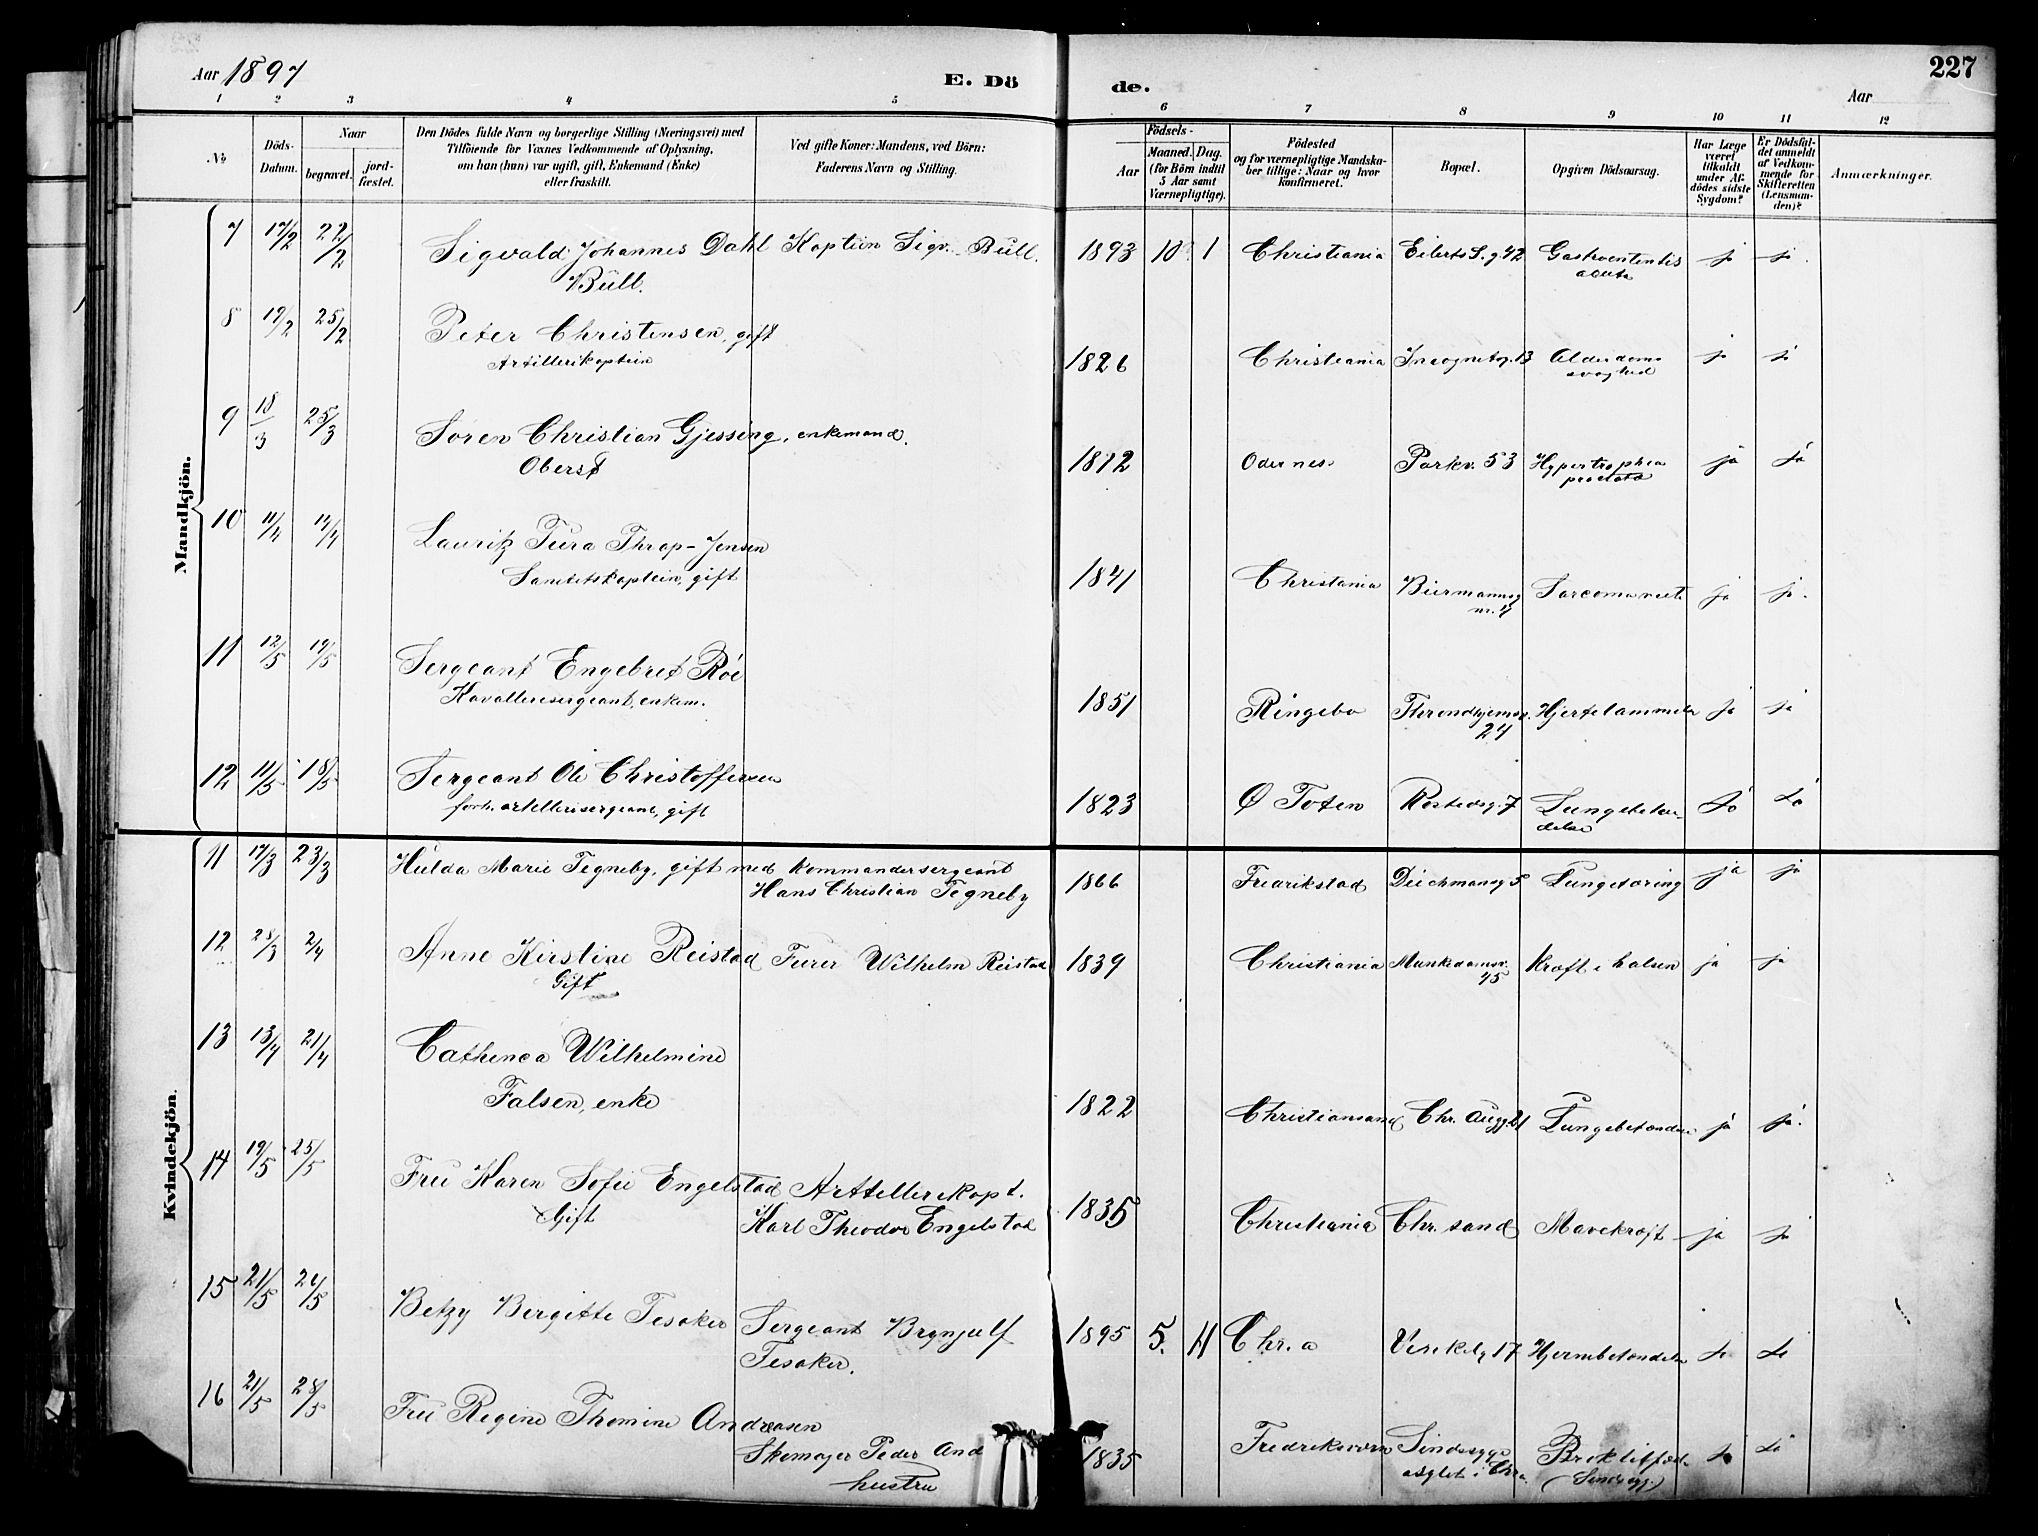 Aar 1897
E. Dö
de.
227
Aar
1 2 3 4 5 6 7 8 9 10 11 12
№
Döds-
Datum.
Naar
begravet.
jord-
fæstet.
Den Dödes fulde Navn og borgerlige Stilling (Næringsvei) med
Tilföiende for Voxnes Vedkommende af Oplysning,
om han (hun) var ugift, gift, Enkemand (Enke)
eller fraskilt.
Ved gifte Koner: Mandens, ved Börn:
Faderens Navn og Stilling.
Födsels-
Aar
Maaned. Dag.
(for Börn indtil
5 Aar samt
Værnepligtige).
Födested
og for værnepligtige Mandska-
ber tillige: Naar og hvor
konfirmeret.
Bopæl.
Opgiven Dödsaarsag.
Har Læge
været
tilkaldt
under Af-
dödes sidste
Sygdom?
Er Dödsfal-
det anmeldt
af Vedkom-
mende for
Skifteretten
(Lensman-
den)?
Anmærkninger.
Mandkjön.
7 17/2 22/2 Sigvald Johannes Dahl Kaptein Sigv. Büll. 1893 10 1 Christiania Eilerts S. g. 42 ja ja
Büll. acuta
8 19/2 25/2 Peter Christensen, gift 1826 Christiania Incognitog. 13 Alderdoms ja ja
Artillerikaptein svaghed
9 18/3 25/3 Søren Christian Gjessing, enkemand. 1812 Odernes Parkv. 53 Hypertrophia ja ja
Oberst prostata
10 11/4 17/4 Lauritz Tura Throp-Jensen 1841 Christania Biermannsg ja ja.
Sanitetskaptein, gift nr. 4
11 12/5 19/5 Sergeant Engebret Röe 1851 Ringebo Throndhjemsv. Hjertelammelse ja ja
Kavallerisergeant, enkem. 24
12 11/5 18/5 Sergeant Ole Christoffersen 1823 Ø Toten Rostedsg. 7 ja ja
forh. artillerisergeant, gift
Kvindekjön.
11 17/3 23/3 Hulda Marie Tegneby, gift med Kommandersergeant 1866 Fredrikstad Deichmansg 5 Lungetæring ja ja
Hans Christian Tegneby
12 28/3 2/4 Anne Kirstine Reistad Furer Wilhelm Reistad 1839 Christiania Munkedamsv. Kræft i halsen ja ja
Gift 45
13 13/4 21/4 Cathinca Wilhelmine
Falsen, enke 1822 Christiansand Chr. Augg. 21 Lungebetændelse ja ja.
14 19/5 25/5 Fru Karen Sofie Engelstad Arttellerikapt. 1835 Christiania Chr. sand Mavekræft ja ja
Gift Karl Theodor Engelstad
15 21/5 26/5 Betzy Birgitte Tesaker Sergeant Brynjulf 1895 5. 11 Chr. a 17 Hjernebetændelse ja ja
Tesaker.
16 21/5 28/5 Fru Regine Thomine Andreasen 1835 Fredriksværn Sindssyge ja ja
Skomager Peder And asylet i Chra (Sindssyg.)
hustru